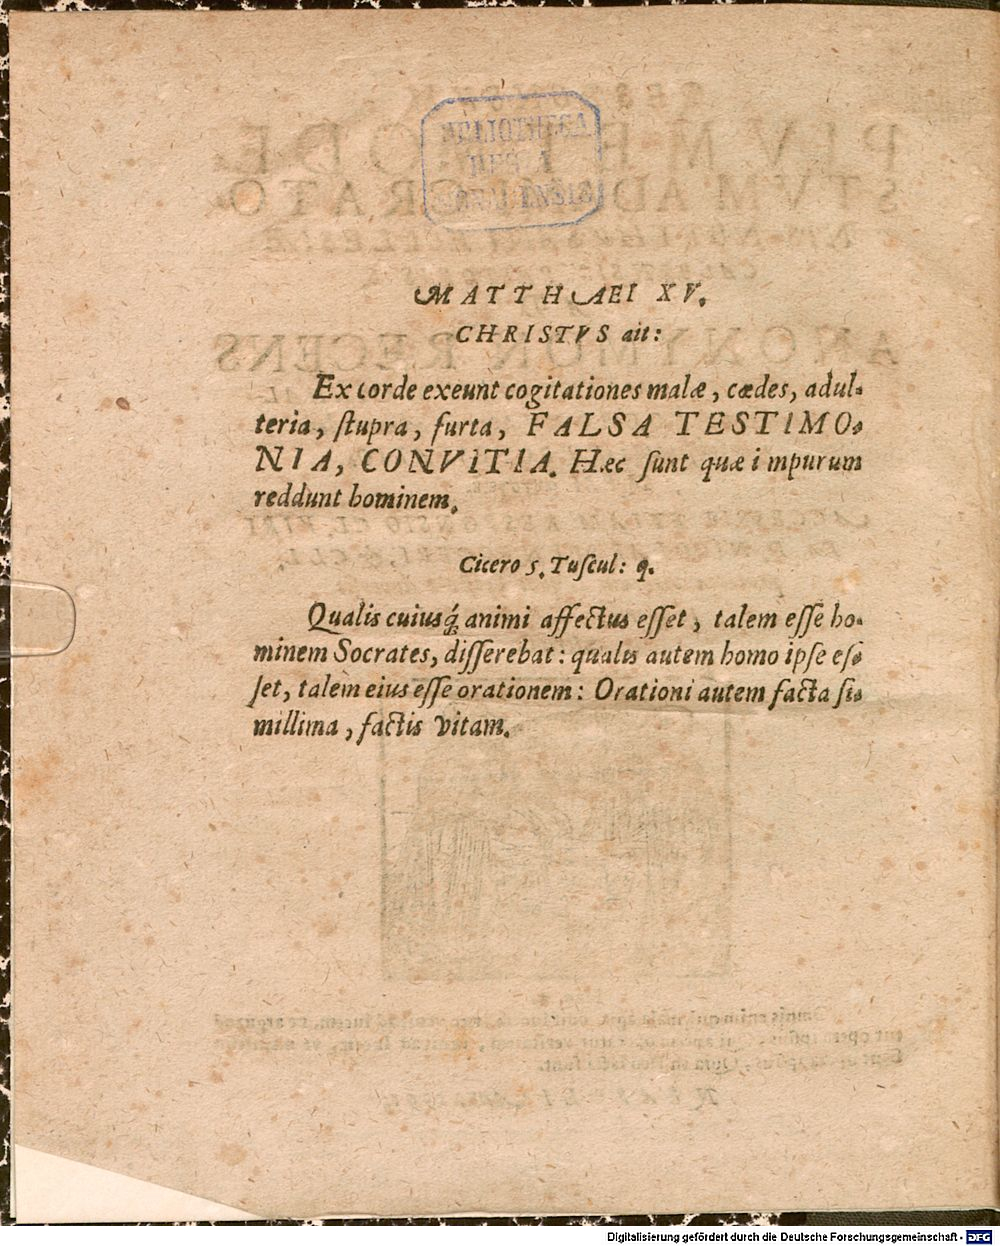 BIBLIOTHECA
REGIA
MATTHAEI XV.
CHRISTVS ait:
Ex corde exeunt cogitationes malæ, cædes, adul-
teria, ſtupra, furta, FALSA TESTIMO-
NIA, CONVITIA. Hæc ſunt quæ impurum
reddunt hominem.
Cicero 5. Tuſcul: q.
Qualis cuiusq́; animi affectus eſſet, talem eſſe ho-
minem Socrates, diſſerebat: qualis autem homo ipſe eſ-
ſet, talem eius eſſe orationem: Orationi autem facta ſi-
millima, factis vitam.
Digitalisierung gefördert durch die Deutsche Forschungsgemeinschaft - DFG